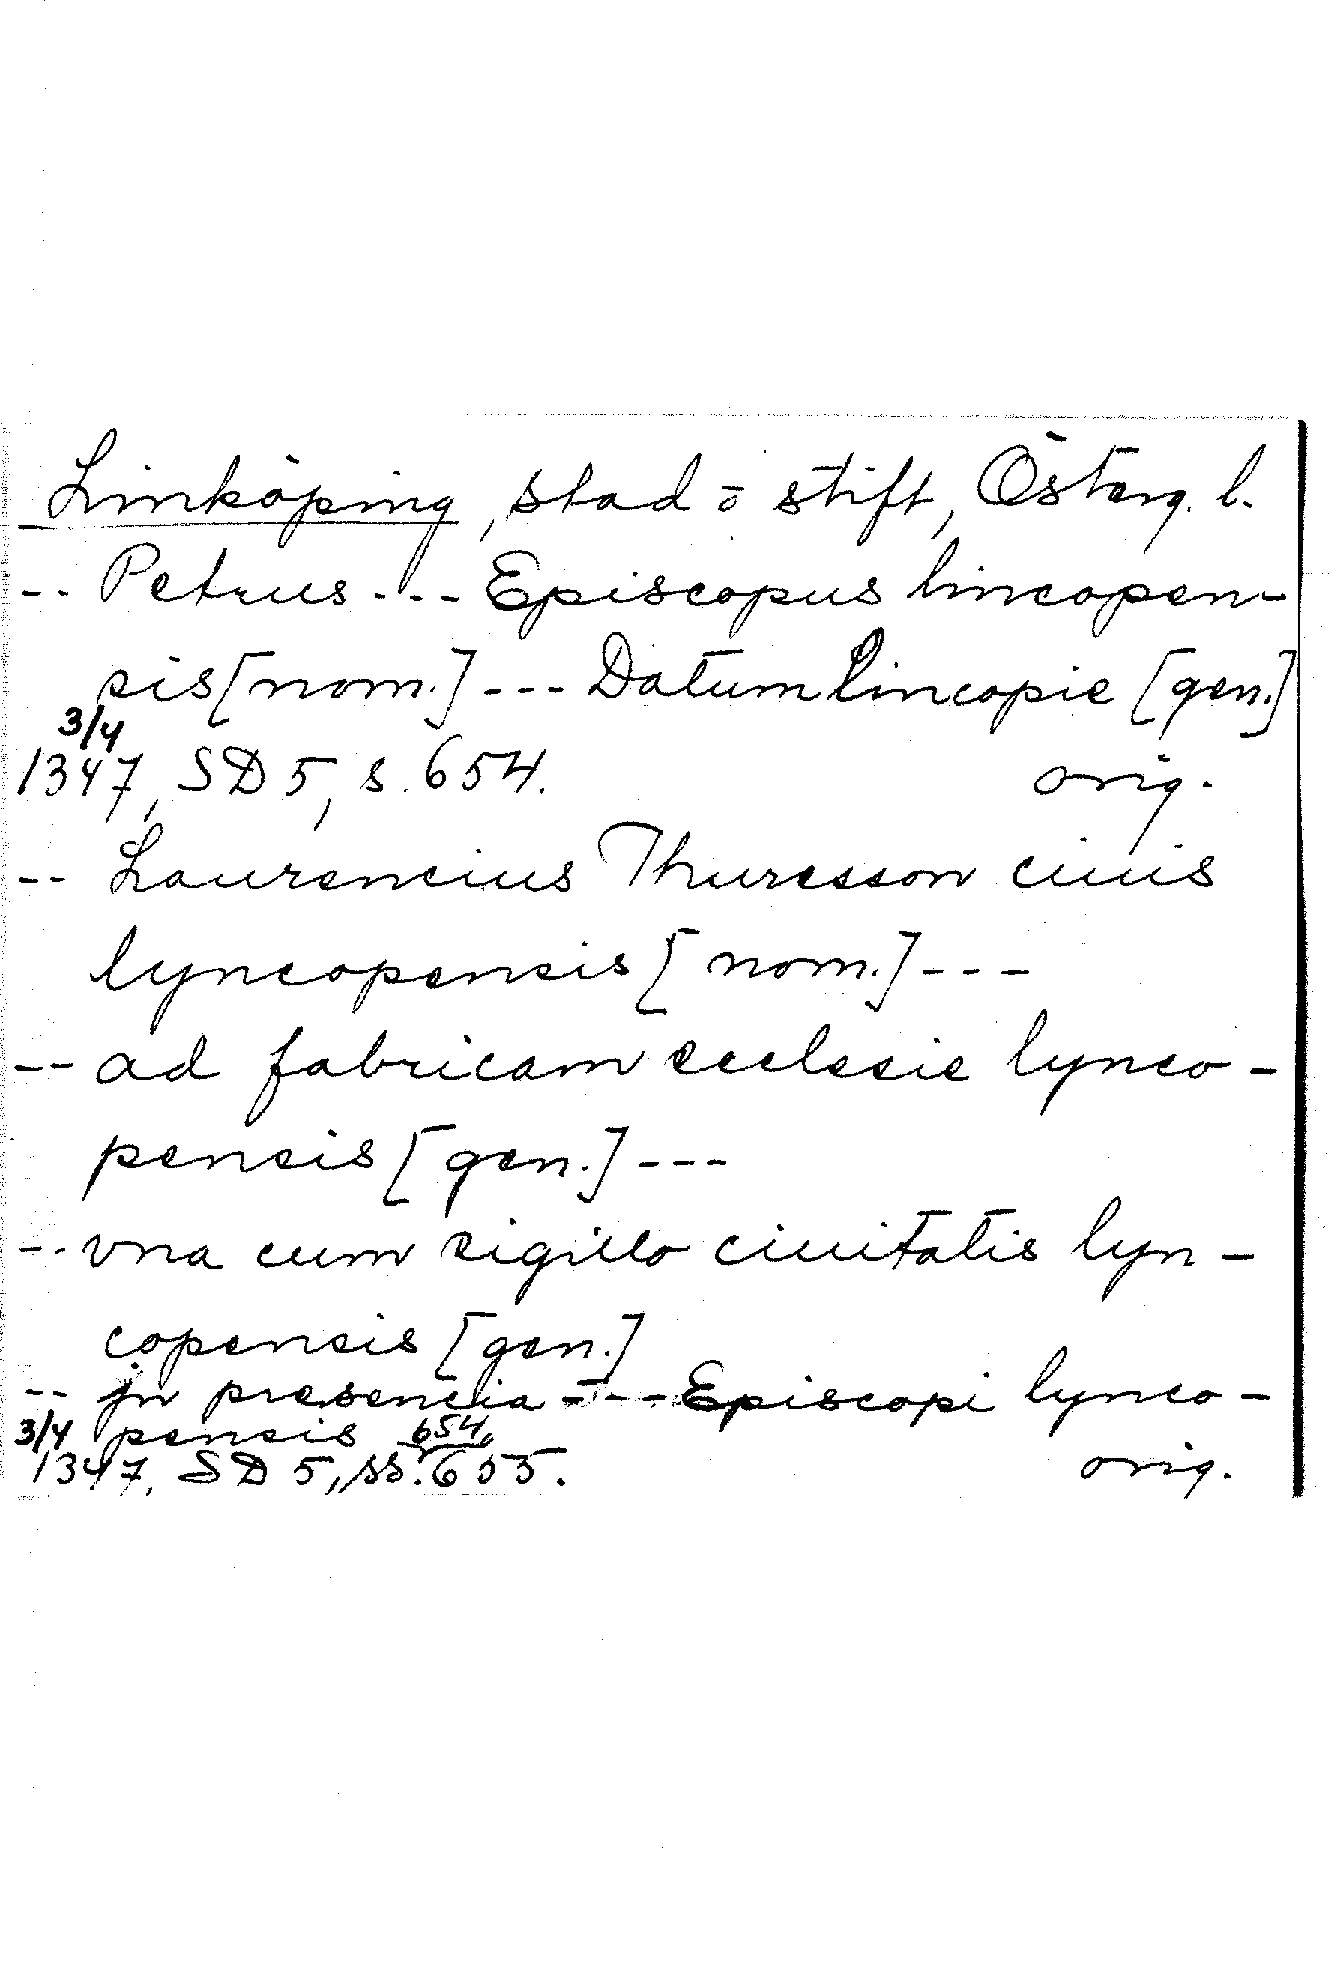 Linköping, stad o stift, Österg. l.
-- Petrus --- Episcopus lincopen-
sis [nom.] --- Datum lincopie [gen.]
3/4
1347, SD 5, s. 654. orig.
-- Laurencius Thuresson ciuis
lyncopensis [nom.] ---
-- ad fabricam ecclesie lynco-
pensis [gen.] ---
-- vna cum sigillo ciuitatis lyn-
copensis [gen.]
-- jn presencia --- Episcopi lynco-
3/4 pensis 654,
1347, SD 5, ss. 655. orig.